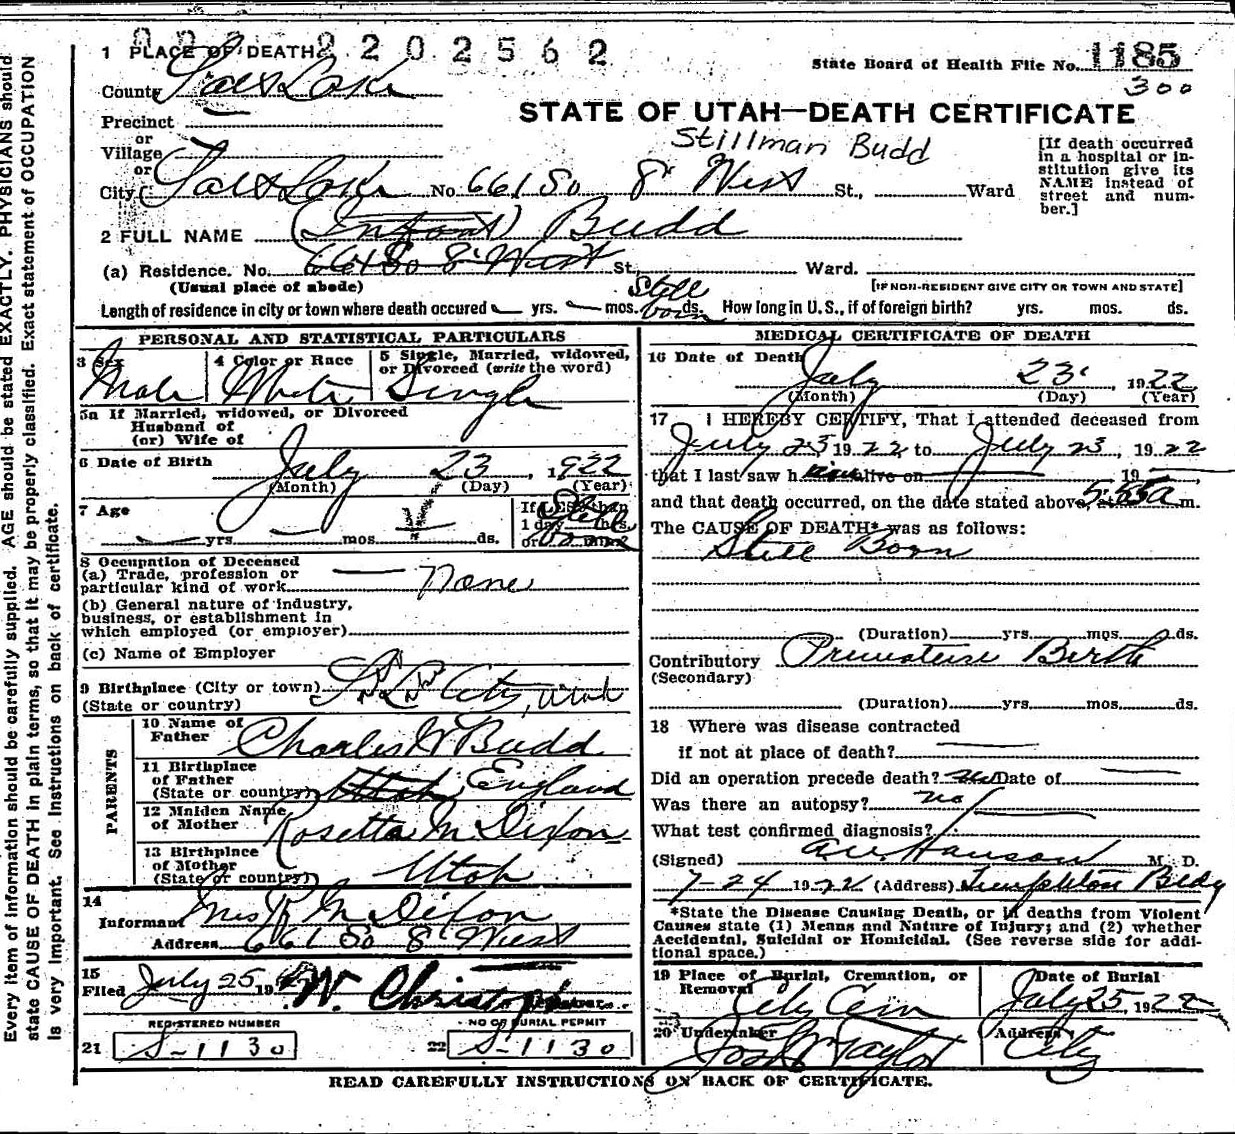 2202562
1 PLACE OF DEATH
State Board of Health File No. 1185
300
County Salt Lake
STATE OF UTAH—DEATH CERTIFICATE
Precinct
or
Village
or
Stillman Budd
[If death occurred in a hospital or institution give its NAME instead of street and number.]
City Salt Lake No. 661 So 8' West St., Ward
2 FULL NAME (Infant) Budd
(a) Residence. No. 661 So 8' West St. Ward.
(Usual place of abode)
[IF NON-RESIDENT GIVE CITY OR TOWN AND STATE]
Length of residence in city or town where death occured yrs. mos. Still born ds. How long in U.S., if of foreign birth? yrs. mos. ds.
PERSONAL AND STATISTICAL PARTICULARS
3 Sex Male
4 Color or Race White
5 Single, Married, widowed, or Divorced (write the word) Single
5a If Married, widowed, or Divorced
Husband of
(or) Wife of
6 Date of Birth July 23, 1922
(Month) (Day) (Year)
7 Age yrs. mos. ds.
If LESS than 1 day hrs. or min? Still born
8 Occupation of Deceased
(a) Trade, profession or
particular kind of work None
(b) General nature of industry,
business, or establishment in
which employed (or employer)
(c) Name of Employer
9 Birthplace (City or town) S. L. City, Utah
(State or country)
PARENTS
10 Name of Father Charles W Budd
11 Birthplace of Father (State or country) Utah England
12 Maiden Name of Mother Rosetta M Dixon
13 Birthplace of Mother (State or country) Utah
14
Informant Mrs R M Dixon
Address 661 So 8' West
15
Filed July 25 19 22 W. Christoph Registrar
REGISTERED NUMBER
21 S-1130
NO OF BURIAL PERMIT
22 S-1130
MEDICAL CERTIFICATE OF DEATH
16 Date of Death July 23, 1922
(Month) (Day) (Year)
17 I HEREBY CERTIFY, That I attended deceased from
July 23 1922 to July 23, 1922
that I last saw him alive on 19
and that death occurred, on the date stated above, at 5:55 a m.
The CAUSE OF DEATH* was as follows:
Still Born
(Duration) yrs. mos. ds.
Contributory Premature Birth
(Secondary)
(Duration) yrs. mos. ds.
18 Where was disease contracted
if not at place of death?
Did an operation precede death? no Date of
Was there an autopsy? no
What test confirmed diagnosis?
(Signed) A.W. Hanson M. D.
7-24 1922 (Address) Templeton Bldg
*State the Disease Causing Death, or in deaths from Violent
Causes state (1) Means and Nature of Injury; and (2) whether
Accidental, Suicidal or Homicidal. (See reverse side for additional space.)
19 Place of Burial, Cremation, or Removal City Cem
Date of Burial July 25, 1922
20 Undertaker Jos Wm Taylor
Address City
READ CAREFULLY INSTRUCTIONS ON BACK OF CERTIFICATE.
Every item of information should be carefully supplied. AGE should be stated EXACTLY. PHYSICIANS should
state CAUSE OF DEATH in plain terms, so that it may be properly classified. Exact statement of OCCUPATION
is very important. See Instructions on back of certificate.